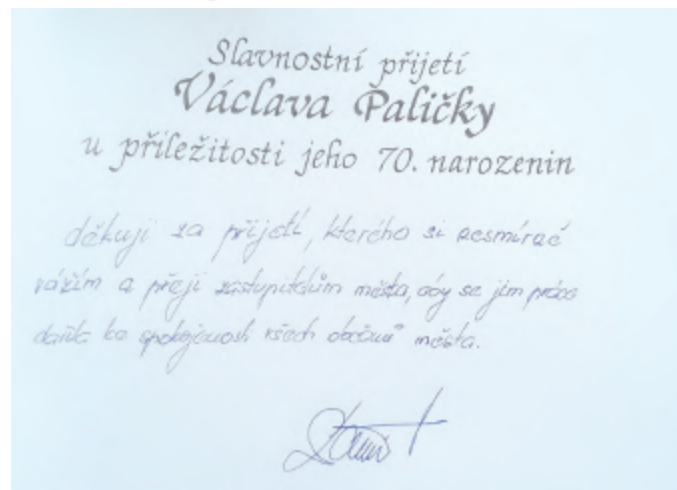 Slavnostní přijetí
Václava Paličky
u příležitosti jeho 70. narozenin
děkuji za přijetí, kterého si nesmírně
vážím a přeji zastupitelům města, aby se jim práce
dařila ke spokojenosti všech občanů města.